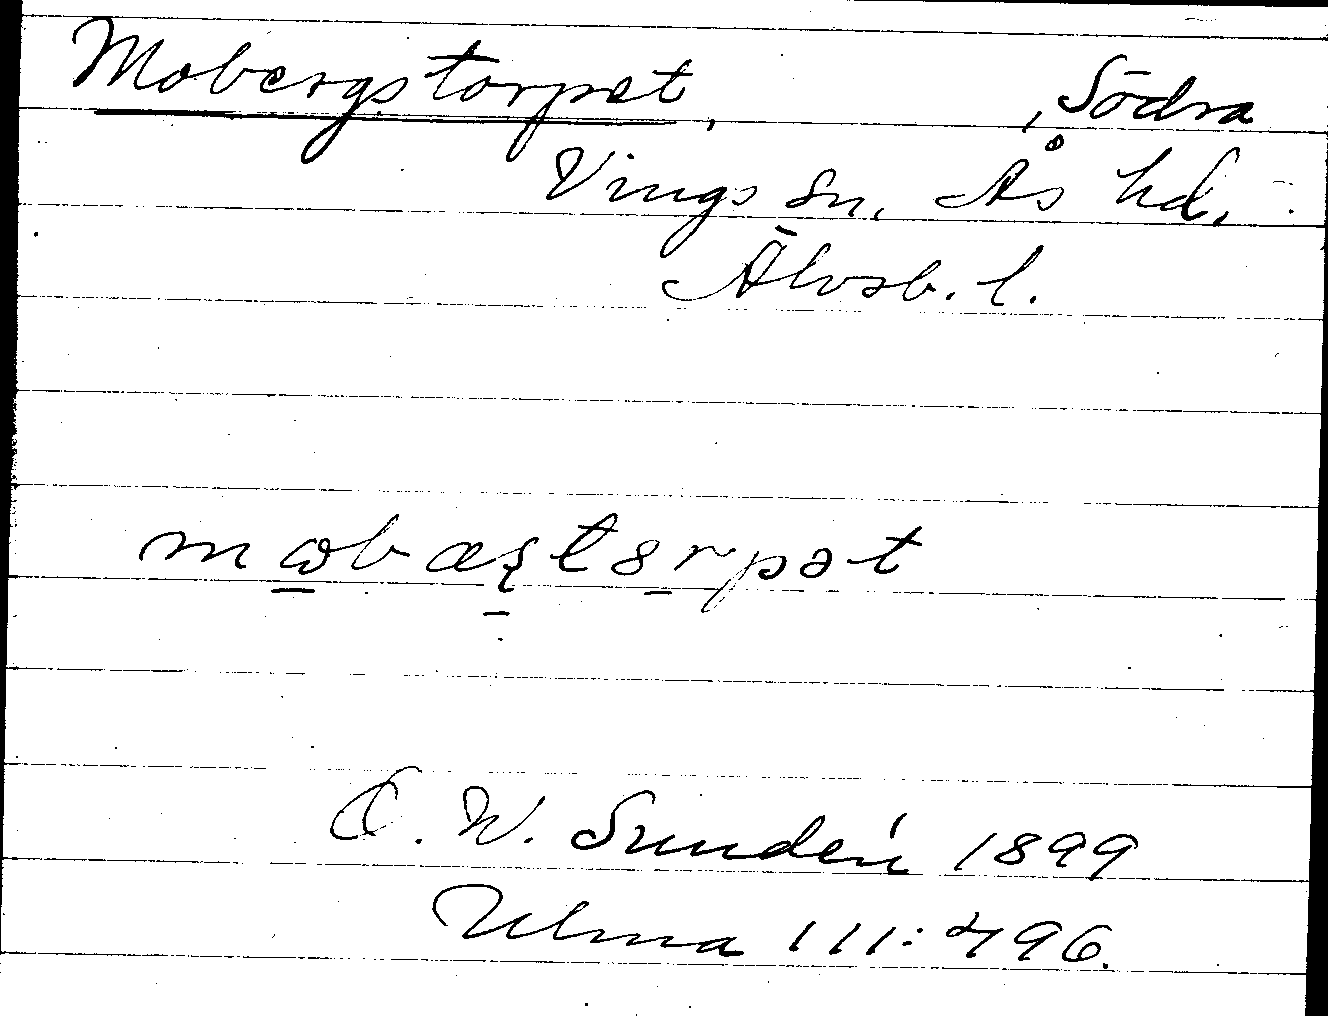 Mobergstorpet, , Södra
Vings sn, Ås hd,
Älvsb. l.
mωbæʂtɞrpət
C. W. Sundén 1899
Ulma 111:496.